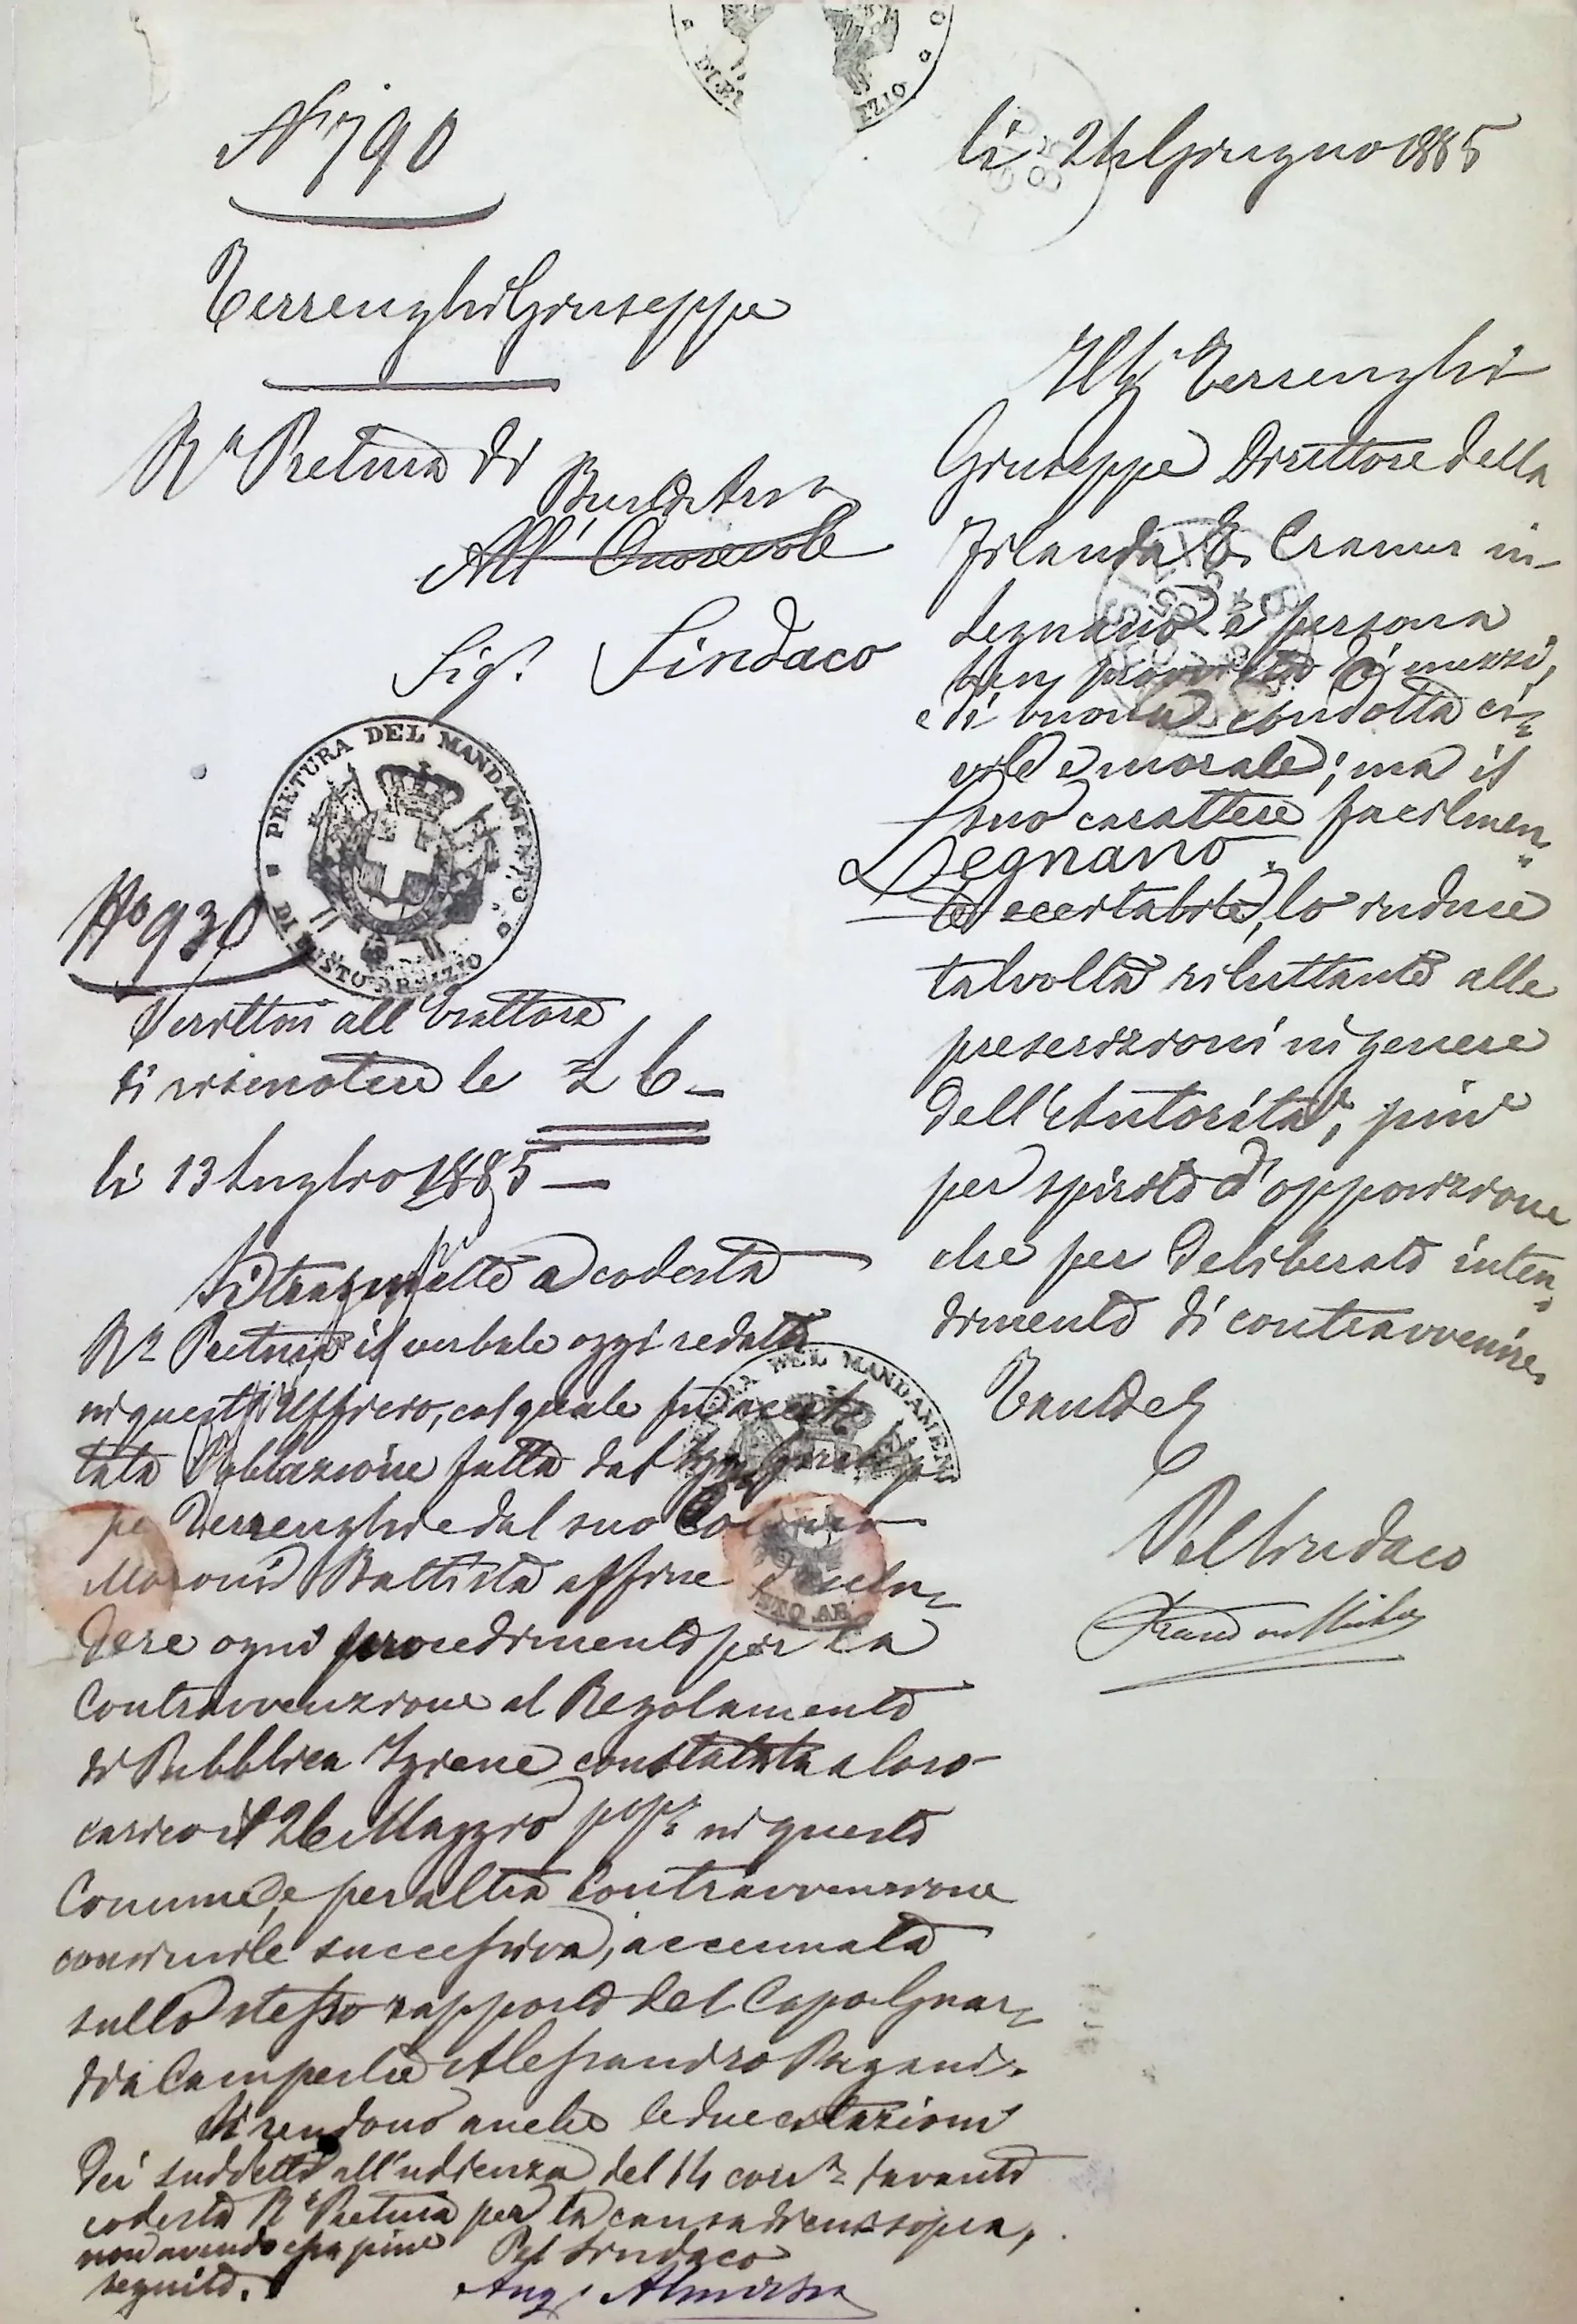 N° 790
li 24 Giugno 1885
Terrenghi Giuseppe
Rª Pretura di
Busto Arsº
All' Onorevole
Sigr Sindaco
Legnano
PRETURA DEL MANDAMENTO
DI BUSTO ARSIZIO
N° 930
Scritto all'Esattore
di riscuotere le £ 6 —
li 13 Luglio 1885 —
Si trasmette a codesta
Rª Pretura il verbale oggi redatto
in quest'Ufficio, col quale fu accer
tata l'oblazione fatta dal Giusep
pe Terrenghi e dal suo
Battista affine d'esclu
dere ogni procedimento per la
Contravvenzione al Regolamento
di Pubblica Igiene constatata a loro
carico il 26 Maggio pº pº in questo
Comune, e per altra Contravvenzione
consimile successiva, accennata
sullo stesso rapporto del Capo Guar
dia Campestre Alessandro Pagani.
Si rendono anche le due citazioni
dei suddetti all'udienza del 14 corre davanti
codesta Rª Pretura per la causa di cui sopra,
non avendo essa più
seguito.
Pel Sindaco
Il Terrenghi
Giuseppe Direttore della
Filanda E. Cramer in
Legnano è persona
ben provvista di mezzi,
e di buona condotta ci
vile e morale; ma il
suo carattere facilmen
te eccitabile, lo induce
talvolta riluttante alle
prescrizioni in genere
dell'Autorità, più
per spirito d'opposizione
che per deliberato inten
dimento di contravvenire.
Tanto
Pel Sindaco